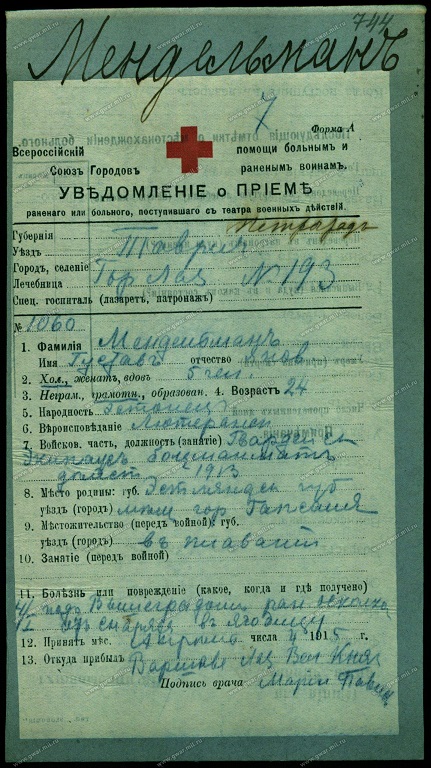 744
Мендельманъ
7
Форма А
Всероссійскій
помощи больнымъ и
Союзъ Городовъ
раненымъ воинамъ.
УВѢДОМЛЕНІЕ о ПРІЕМѢ
раненаго или больного, поступившаго съ театра военныхъ дѣйствій.
Петроградъ
Губернія
Уѣздъ
Городъ, селеніе
Лечебница Гор Лаз № 193
Спец. госпиталь (лазаретъ, патронажъ)
№ 1060
1. Фамилія Мендельманъ
Имя Густавъ отчество Яков
2. Хол., женатъ, вдовъ 5 чел.
3. Неграм., грамотн., образован. 4. Возрастъ 24
5. Народность Эстонецъ
6. Вѣроисповѣданіе Лютеранин
7. Войсков. часть, должность (занятіе) Гвардейск
Экипажъ боцманматъ
1913
8. Мѣсто родины: губ. Эстляндск губ
уѣздъ (городъ) гор Гапсаля
9. Мѣстожительство (передъ войной): губ.
уѣздъ (городъ) въ плаваніи
10. Занятіе (передъ войной)
11. Болѣзнь или поврежденіе (какое, когда и гдѣ получено)
4/I подъ Вышеградомъ ран осколко
снаряда въ ягодицу
12. Принятъ мѣс. Апрѣль числа 4 1915 г.
13. Откуда прибылъ Варшава Лаз Вел Княг
Подпись врача Маріи Павл
www.gwar.mil.ru